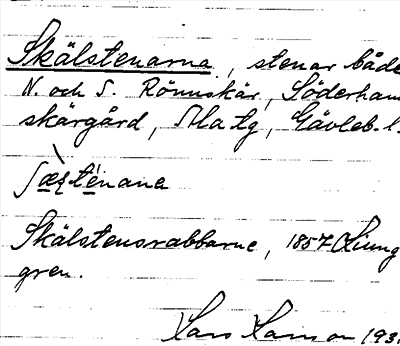 Skälstenarna, stenar både
N. och S. Rönnskär, Söderham
skärgård, Gävleb. l.
Skälstensrabbarne, 1857 Ljung
gren.
Lars 193